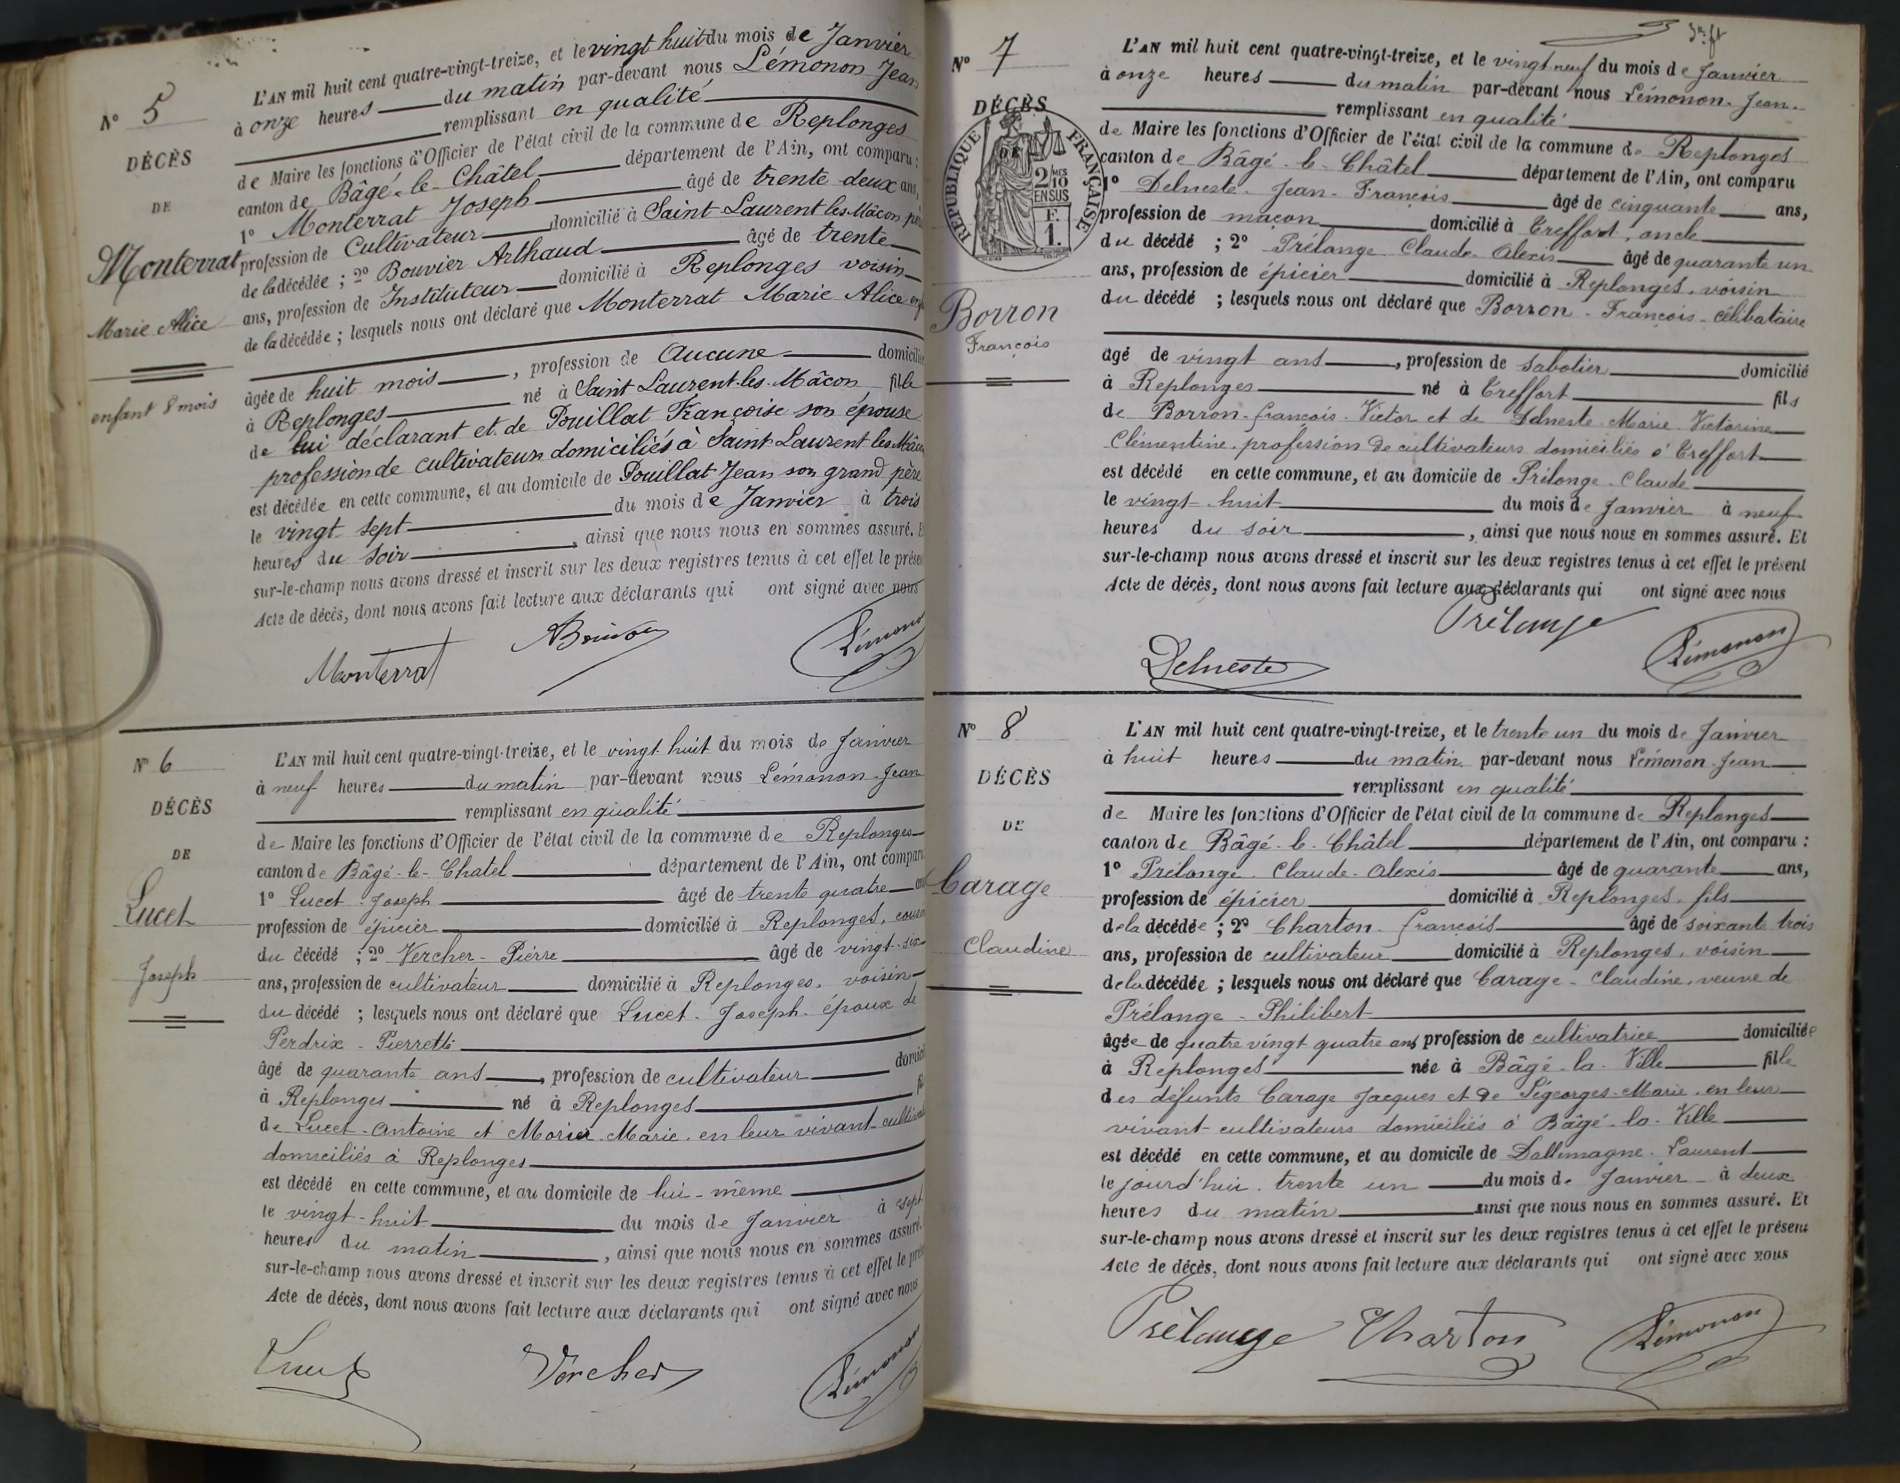 N° 5
DÉCÈS
DE
Monterrat
Marie Alice
enfant 8 mois
L'AN mil huit cent quatre-vingt-treize, et le vingt huit du mois de Janvier
à onze heures du matin par-devant nous Lémonon Jean
remplissant en qualité
de Maire les fonctions d'Officier de l'état civil de la commune de Replonges
canton de Bâgé-le-Châtel département de l'Ain, ont comparu :
1° Monterrat Joseph âgé de trente deux ans,
profession de Cultivateur domicilié à Saint Laurent les Mâcon
de la décédée ; 2° Bouvier Arthaud âgé de trente
ans, profession de Instituteur domicilié à Replonges voisin
de la décédée ; lesquels nous ont déclaré que Monterrat Marie Alice
âgée de huit mois, profession de Aucune
à Replonges né à Saint Laurent-les-Mâcon fille
de lui déclarant et de Pouillat Françoise son épouse
profession de cultivateurs domiciliés à Saint Laurent les Mâcon
est décédée en cette commune, et au domicile de Pouillat Jean son grand père
le vingt sept du mois de Janvier à trois
heures du soir, ainsi que nous nous en sommes assuré.
sur-le-champ nous avons dressé et inscrit sur les deux registres tenus à cet effet le
Acte de décès, dont nous avons fait lecture aux déclarants qui ont signé avec nous
Monterrat Lémonon
N° 6
DÉCÈS
DE
Lucet
Joseph
L'AN mil huit cent quatre-vingt-treize, et le vingt huit du mois de Janvier
à neuf heures du matin par-devant nous Lémonon Jean
remplissant en qualité
de Maire les fonctions d'Officier de l'état civil de la commune de Replonges
canton de Bâgé-le-Chatel département de l'Ain, ont comparu
1° Lucet Joseph âgé de trente quatre
profession de épicier domicilié à Replonges,
du décédé ; 2° Vercher Pierre âgé de vingt-six
ans, profession de cultivateur domicilié à Replonges, voisin
du décédé ; lesquels nous ont déclaré que Lucet Joseph époux de
Perdrix Pierrette
âgé de quarante ans, profession de cultivateur
à Replonges né à Replonges
de Lucet Antoine et Morier Marie en leur vivant
domiciliés à Replonges
est décédé en cette commune, et au domicile de lui-même
le vingt-huit du mois de Janvier à sept
heures du matin, ainsi que nous nous en sommes assuré.
sur-le-champ nous avons dressé et inscrit sur les deux registres tenus à cet effet le
Acte de décès, dont nous avons fait lecture aux déclarants qui ont signé avec nous
Lucet Vercher Lémonon
N° 7
DÉCÈS
DE
RÉPUBLIQUE FRANÇAISE
2 MES
10
EN SUS
F.
1.
Borron
François
L'AN mil huit cent quatre-vingt-treize, et le vingt neuf du mois de Janvier
à onze heures du matin par-devant nous Lémonon Jean
remplissant en qualité
de Maire les fonctions d'Officier de l'état civil de la commune de Replonges
canton de Bâgé-le-Châtel département de l'Ain, ont comparu
1° Delneste Jean-François âgé de cinquante ans,
profession de maçon domicilié à Treffort, oncle
du décédé ; 2° Prélange Claude Alexis âgé de quarante un
ans, profession de épicier domicilié à Replonges, voisin
du décédé ; lesquels nous ont déclaré que Borron François célibataire
âgé de vingt ans, profession de sabotier domicilié
à Replonges né à Treffort fils
de Borron François Victor et de Delneste Marie Victorine
Clémentine profession de cultivateurs domiciliés à Treffort
est décédé en cette commune, et au domicile de Prélange Claude
le vingt-huit du mois de Janvier à neuf
heures du soir, ainsi que nous nous en sommes assuré. Et
sur-le-champ nous avons dressé et inscrit sur les deux registres tenus à cet effet le présent
Acte de décès, dont nous avons fait lecture aux déclarants qui ont signé avec nous
Prélange
Delneste Lémonon
N° 8
DÉCÈS
DE
Carage
Claudine
L'AN mil huit cent quatre-vingt-treize, et le trente un du mois de Janvier
à huit heures du matin par-devant nous Lémonon Jean
remplissant en qualité
de Maire les fonctions d'Officier de l'état civil de la commune de Replonges
canton de Bâgé-le-Châtel département de l'Ain, ont comparu :
1° Prélange Claude Alexis âgé de quarante ans,
profession de épicier domicilié à Replonges, fils
de la décédée ; 2° Charton François âgé de soixante trois
ans, profession de cultivateur domicilié à Replonges, voisin
de la décédée ; lesquels nous ont déclaré que Carage Claudine, veuve de
Prélange Philibert
âgée de quatre vingt quatre ans profession de cultivatrice domiciliée
à Replonges née à Bâgé-la-Ville fille
des défunts Carage Jacques et de Pégeorges Marie en leur
vivant cultivateurs domiciliés à Bâgé-la-Ville
est décédé en cette commune, et au domicile de Dallemagne Laurent
le jourd'hui trente un du mois de Janvier à deux
heures du matin ainsi que nous nous en sommes assuré. Et
sur-le-champ nous avons dressé et inscrit sur les deux registres tenus à cet effet le présent
Acte de décès, dont nous avons fait lecture aux déclarants qui ont signé avec nous
Prélange Charton Lémonon